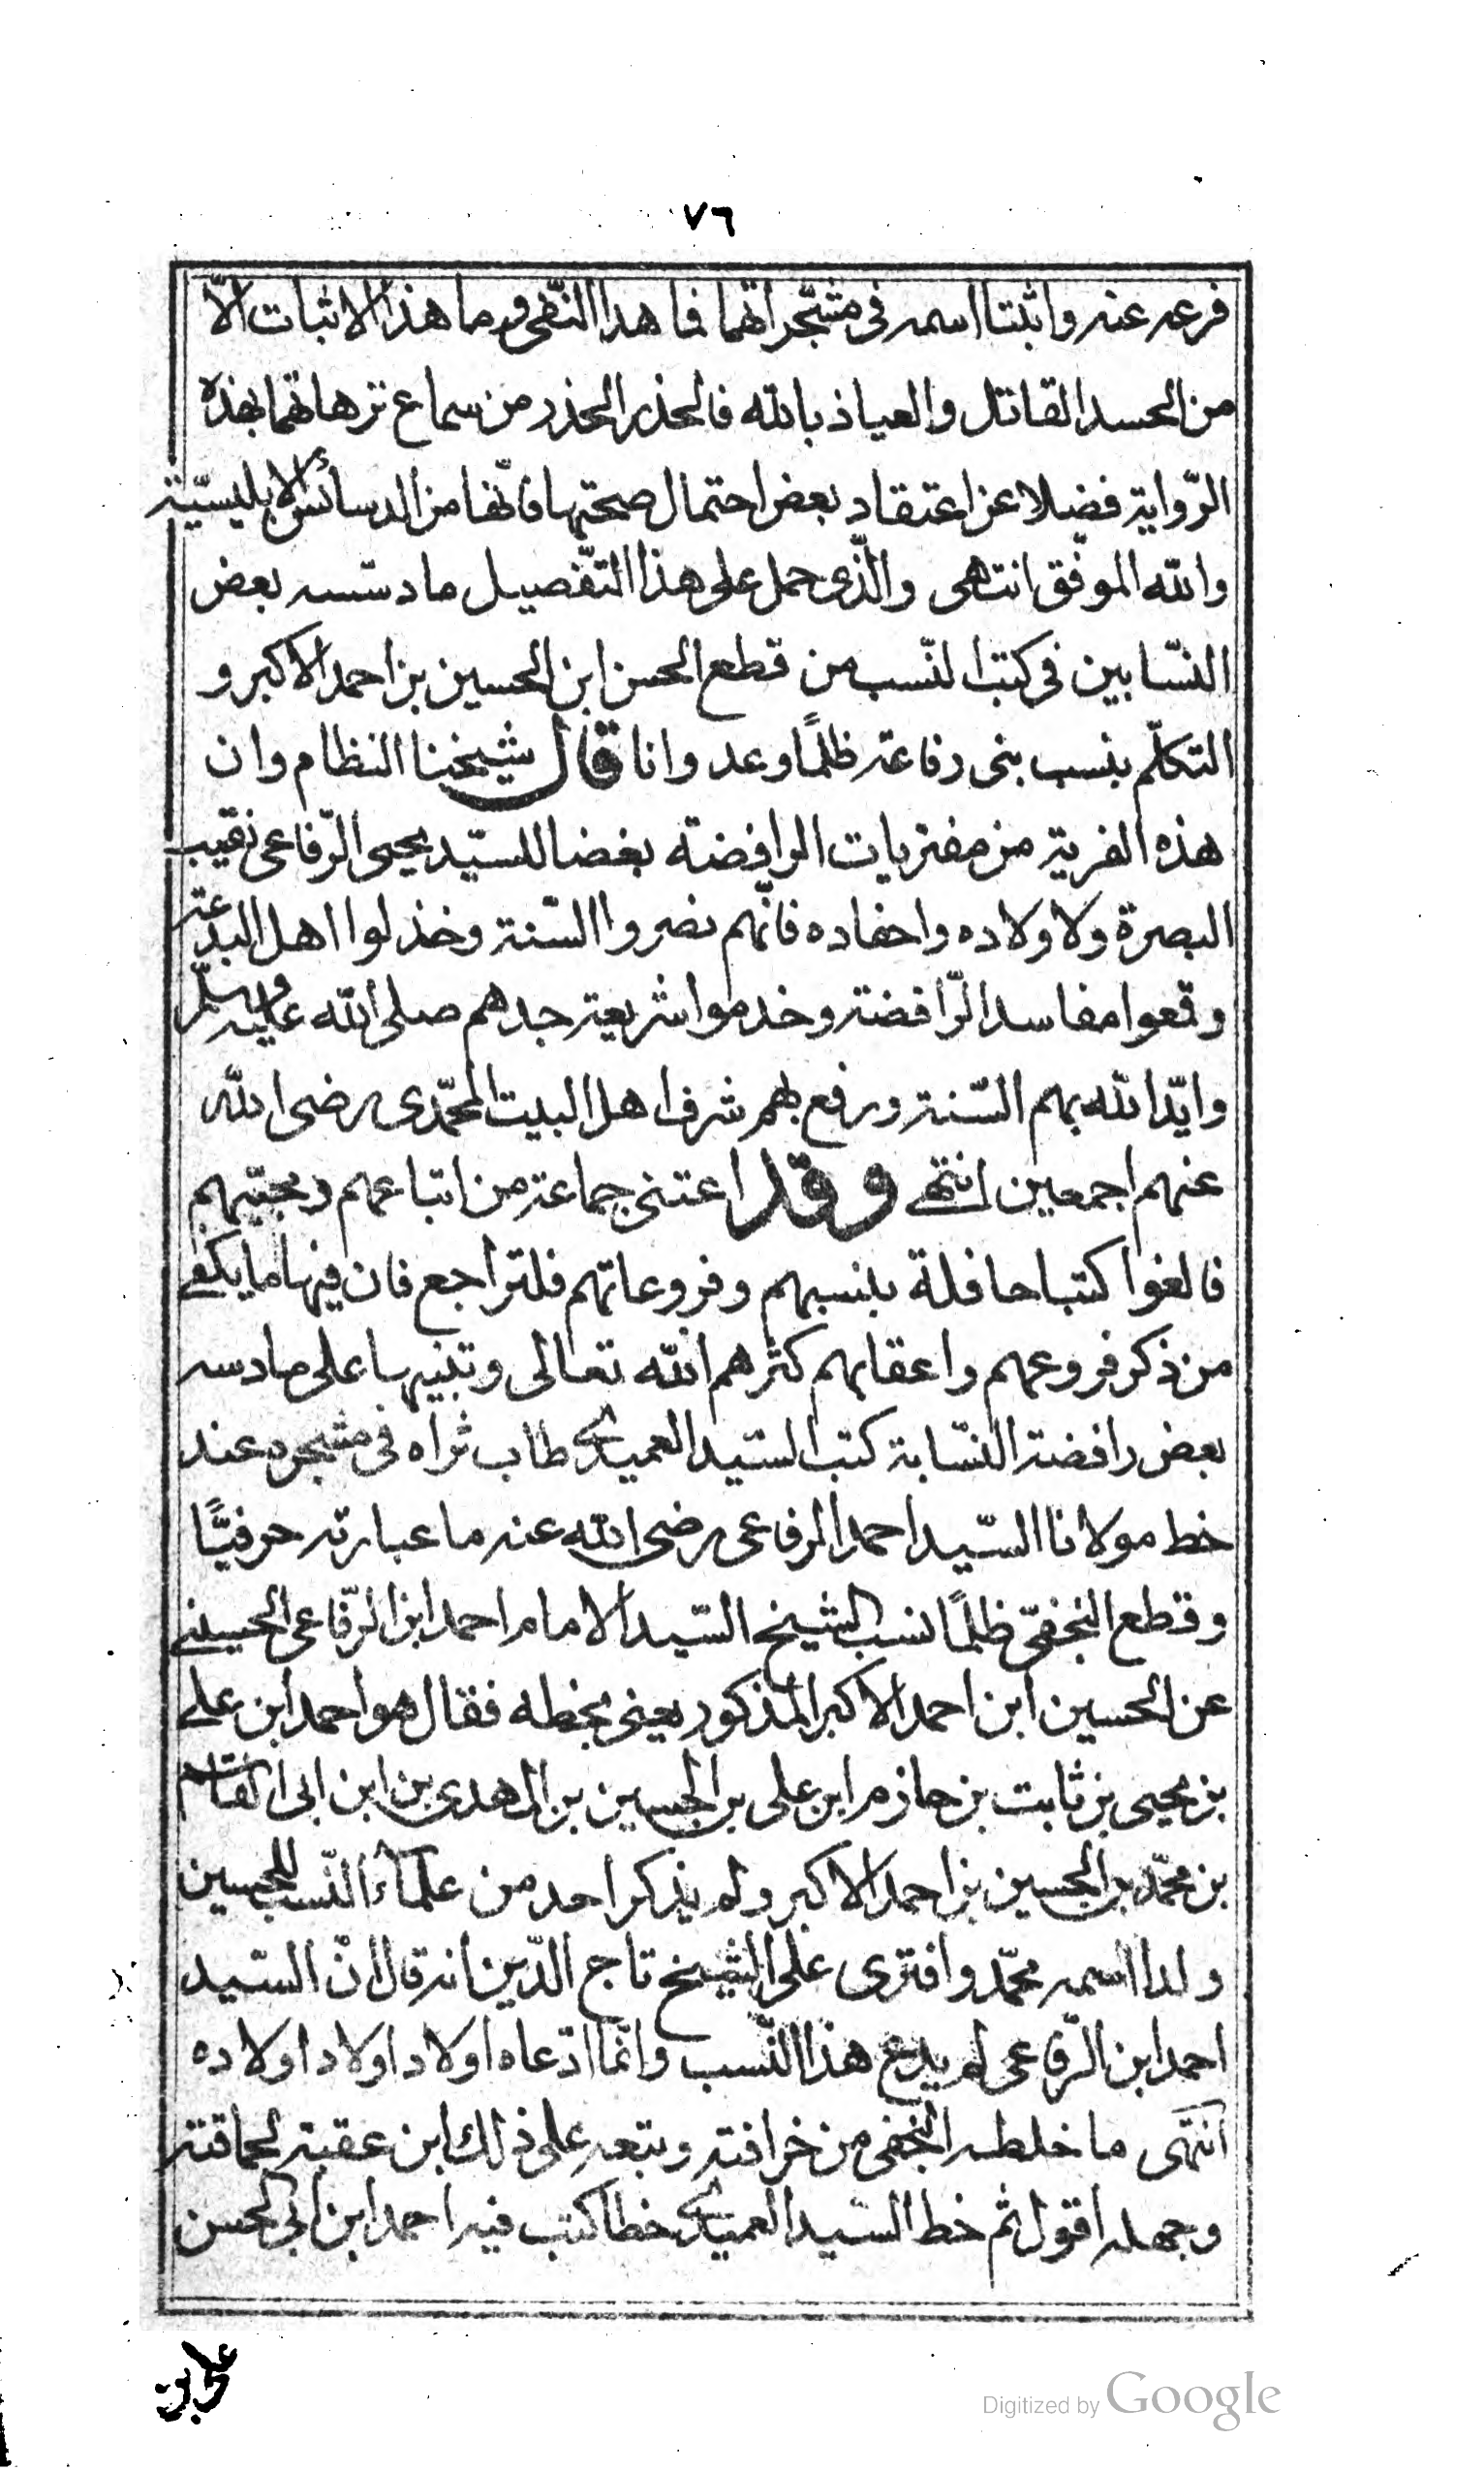 ٧٦
فرعه عنه واثبتا اسمه فى مشجّراتهما فما هذا النّفى وما هذا الاثبات الّا
من الحسد القاتل والعياذ بالله فالحذر الحذر من سماع ترهاتهما بهذه
الرّواية فضلا عن اعتقاد بعض احتمال صحتها فانّها من الدسائس الابليسيّة
والله الموفّق انتهى والّذى حمل على هذا التّفصيل ما دسّسه بعض
النسّابين فى كتب النّسب من قطع الحسن ابن الحسين بن احمد الاكبر و
التكلّم بنسب بنى رفاعة ظلمًا وعدوانا قال شيخنا النظام وان
هذه الفرية من مفتريات الرافضة بغضا للسيّد يحيى الرّفاعى نقيب
البصرة ولاولاده واحفاده فانّهم نصروا السّنة وخذلوا اهل البدعة
وقمعوا مفاسد الرّافضة وخدموا شريعة جدهم صلى الله عليه وسلّم
وايّد الله بهم السّنة ورفع بهم شرف اهل البيت المحمّدى رضى الله
عنهم اجمعين انتهى وقد اعتنى جماعة من اتباعهم ومحبّيهم
فالفوا كتبا حافلة بنسبهم وفروعاتهم فلتراجع فان فيها ما يكفى
من ذكر فروعهم واعقابهم كثرهم الله تعالى وتنبيها على ما دسه
بعض رافضة النسّابة كتب السّيد العميدى طاب ثراه فى مشجره عند
خط مولانا السّيد احمد الرفاعى رضى الله عنه ما عبارته حرفيًّا
وقطع النجفىّ ظلمًا نسب الشيخ السّيد الامام احمد ابن الرّفاعى الحسينى
عن الحسين ابن احمد الاكبر المذكور يعنى بخطه فقال هو احمد ابن على
بن يحيى بن ثابت بن حازم ابن على بن الحسين بن المهدى بن ابن ابى القاسم
بن محمّد بن الحسين بن احمد الاكبر ولم يذكر احد من علمآء النّسب للحسين
ولدا اسمه محمّد وافترى على الشيخ تاج الدّين انه قال انّ السّيد
احمد ابن الرّفاعى لم يدع هذا النّسب وانّما ادّعاه اولاد اولاد اولاده
انتهى ما خلطه النجفى من خرافته وتبعه على ذلك ابن عقبة لحماقته
وجهله اقول ثم خط السّيد العميدى خطا كتب فيه احمد ابن ابى الحسن
على بن
Digitized by Google